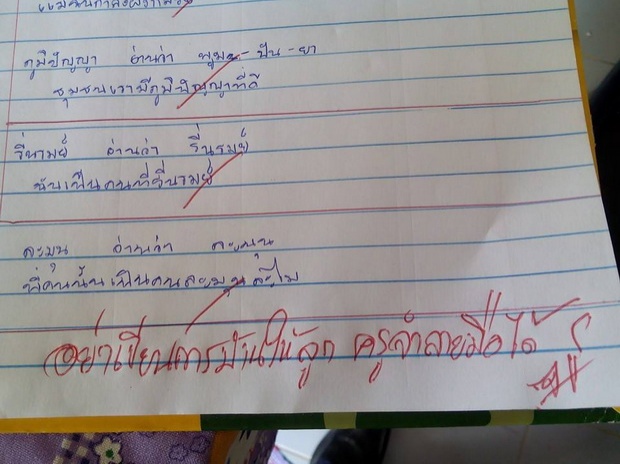 ภูมิปัญญา อ่านว่า พูม - ปัน - ยา
ชุมชนเรามีภูมิปัญญาที่ดี
รื่นรมย์ อ่านว่า รื่นรมย์
ฉันเป็นคนที่รื่นรมย์
ละมุน อ่านว่า ละมุน
พี่คนนั้นเป็นคนละมุนละไม
อย่าเขียนการบ้านให้ลูก ครูจำลายมือได้